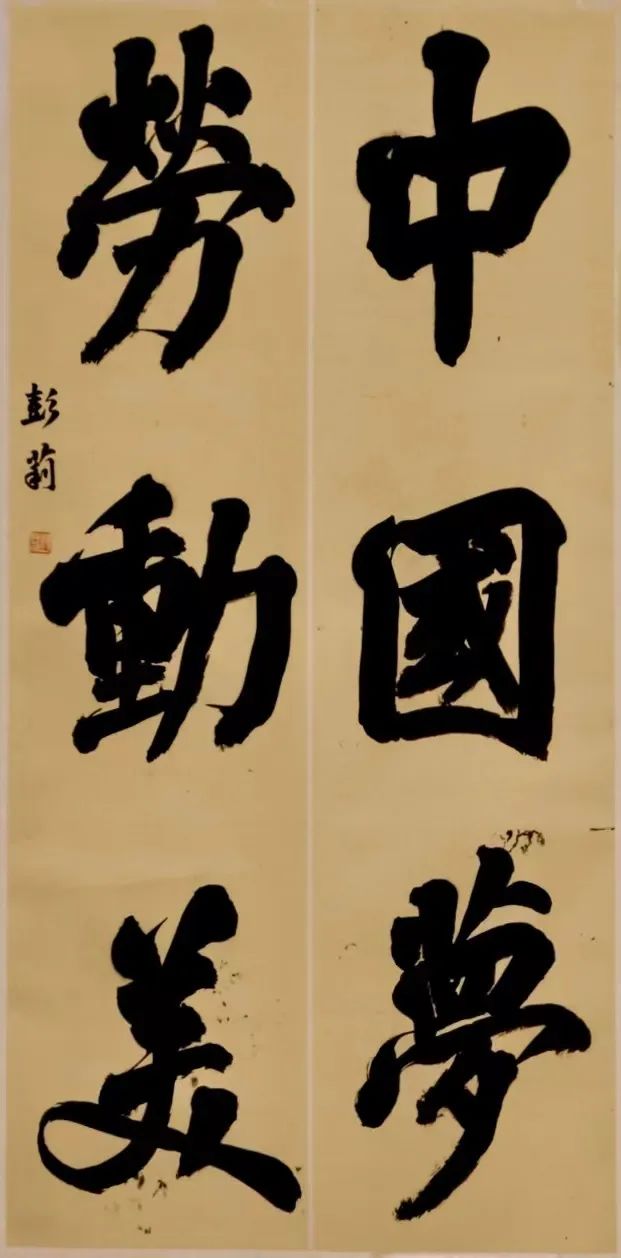 中國夢
勞動美
彭莉